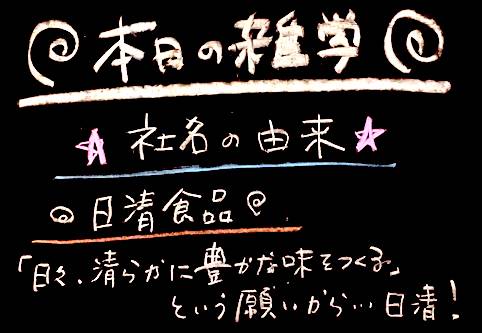 本日の雑学
社名の由来
日清食品
「日々、清らかに豊かな味をつくる」
という願いから…日清!